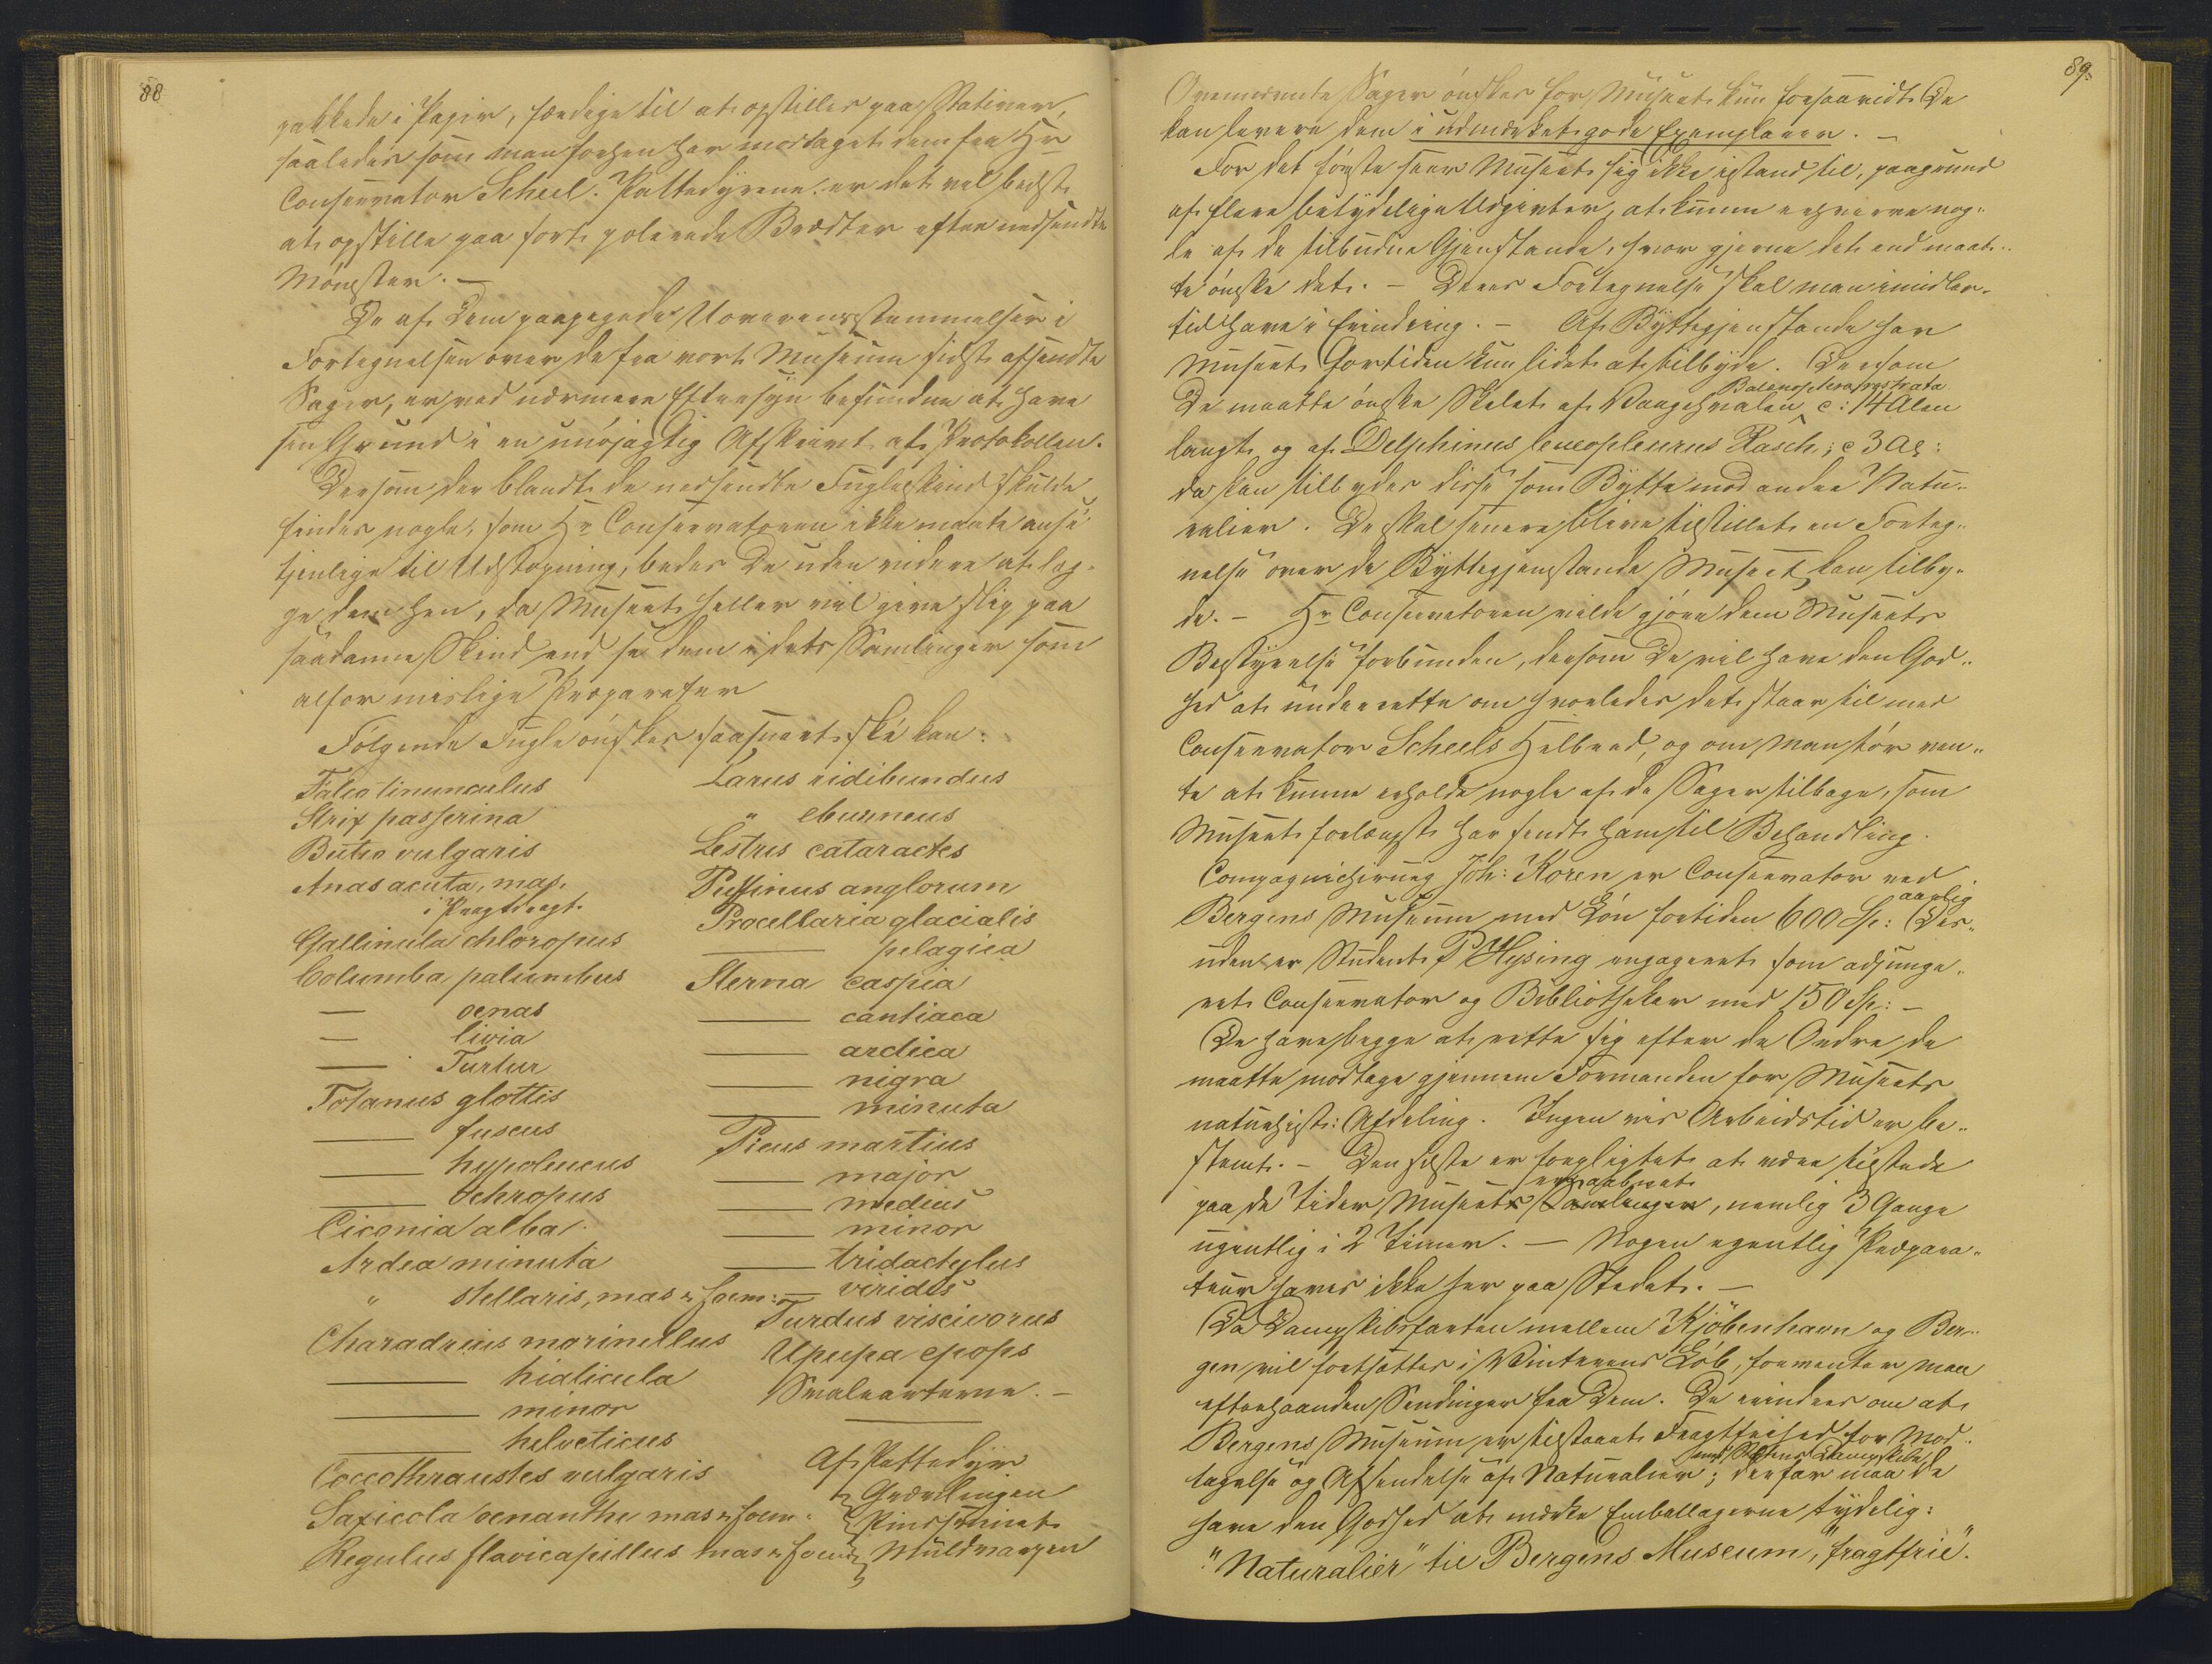 88
pakkede i Papir, færdige til at opstilles paa Stativer,
saaledes som man forhen har modtaget dem fra Hr
Conservator Scheel. Pattedyrene er det vel bedst
at opstille paa sort polerede Brædter efter nedsendte
Mónster. —
De af Dem paapegede Uoverensstemmelser i
Fortegnelsen over de fra vort Museum sidst afsendte
Sager, er ved nærmere Eftersyn befundne at have
sin Grund i en unöjagtig Afskrivt af Protokollen.
Dersom der blandt de nedsendte Fugleskind skulde
findes nogle, som Hr Conservatoren ikke maatte ansé
tjenlige til Udstopning, bedes De uden videre at læg-
ge dem hen, da Museet heller vil give slip paa
saadanne Skind end se dem i dets Samlinger som
alfor mislige Præparater
Fólgende Fugle ónskes saasnart ské kan:
Falco tinunculus
Strix passerina
Buteo vulgaris
Anas acuta, mas.
i Pragtdragt.
Gallinula chloropus
Columba palumbus
— oenas
— livia
— Turtur
Totanus glottis
— fuscus
— hypoleucus
— Ochropus
Ciconia alba.
Ardea minuta
" stellaris, mas & foem:
Charadrius morinellus
— hiaticula
— minor
— helveticus
Coccothraustes vulgaris
Saxicola oenanthe mas & foem:
Regulus flavicapillus mas & foem:
Larus ridibundus
" eburneus
Lestris cataractes
Puffinus anglorum
Procellaria glacialis
— pelagica
Sterna caspia
— cantiaca
— arctica
— nigra
— minuta
Picus martius
— major
— medius
— minor
— tridactylus
— viridis
Turdus viscivorus
Upupa epops
Svalearterne. —
Af Pattedyr
Grævlingen
Pindsvinet
Muldvarpen
89.
Ovennævnte Sager ónskes for Museet kun forsaavidt De
kan levere dem i udmærket gode Exemplarer. —
For det fórste seer Museet sig ikke istand til, paagrund
af flere betydelige Udgivter, at kunne erhverve nog-
le af de tilbudne Gjenstande, hvor gjerne det end maat-
te ónske det. — Deres Fortegnelse skal man imidler-
tid have i Erindring. — Af Byttegjenstande har
Museet fortiden kun lidet at tilbyde. Dersom
Balenoptera rostrata
De maatte ónske Skelet af Vaagehvalen c: 14 Alen
langt og af Delphinus leucopleurus Rasch; c 3 Al:
da kan tilbydes disse som Bytte mod andre Natu-
ralier. De skal senere blive tilstillet en Forteg-
nelse over de Byttegjenstande Museet kan tilby-
de. — Hr Conservatoren vilde gjóre dem Museets
Bestyrelse forbunden, dersom De vil have den God-
hed at underrette om hvorledes det staar til med
Conservator Scheels Helbred, og om man tór ven-
te at kunne erholde nogle af de Sager tilbage, som
Museet forlængst har sendt ham til Behandling.
Compagnichirurg Joh: Koren er Conservator ved
Bergens Museum med Lón fortiden 600 Sp: aarlig Des-
uden er Student P Hysing engageret som adjunge-
ret Conservator og Bibliothekar med 150 Sp: —
De have begge at rette sig efter de Ordre, de
maatte modtage gjennem Formanden for Museets
naturhist: Afdeling. Ingen vis Arbeidstid er be-
stemt. — Den sidste er forpligtet at være tilstede
er aabnet
paa de Tider Museets Samlinger, nemlig 3 Gange
ugentlig i 2 Timer. — Nogen egentlig Præpara-
teur haves ikke her paa Stedet. —
Da Dampskibsfarten mellem Kjöbenhavn og Ber-
gen vil fortsættes i Vinterens Lób, forventer man
efterhaanden Sendinger fra Dem. De erindres om at
Bergens Museum er tilstaaet Fragtfrihed for Mod-
med Statens Dampskibe
tagelse og Afsendelse af Naturalier; derfor maa De
have den Godhed at mærke Emballagerne tydelig:
"Naturalier" til Bergens Museum, "fragtfrie".